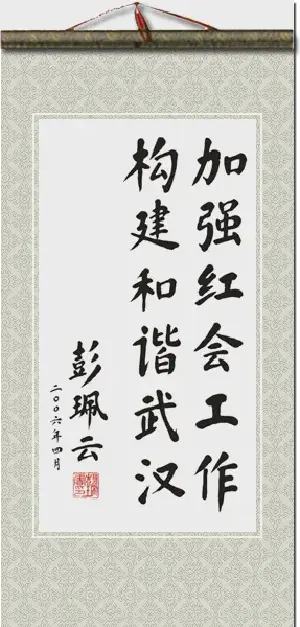 加强红会工作
构建和谐武汉
彭珮云
二〇〇六年四月